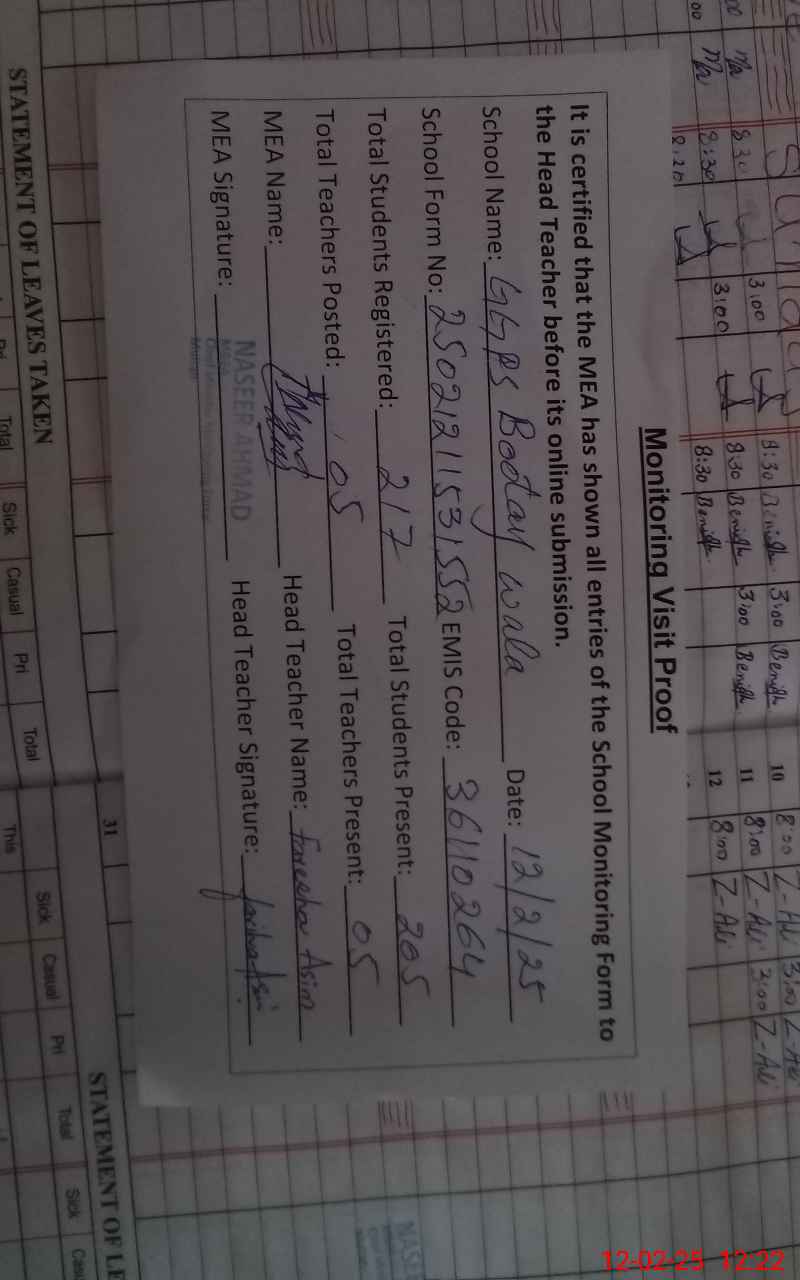 Monitoring Visit Proof
It is certified that the MEA has shown all entries of the School Monitoring Form to
the Head Teacher before its online submission.
School Name: GGPS Bootay wala Date: 12/2/25
School Form No: 25021211531552 EMIS Code: 36110264
Total Students Registered: 217 Total Students Present: 205
Total Teachers Posted: 05 Total Teachers Present: 05
MEA Name: Head Teacher Name: Asim
MEA Signature: Head Teacher Signature:
NASEER AHMAD
8:30 3:00 8:30 3:00 10 8:00 Z-Adi 3:00
8:30 3:00 8:30 3:00 11 8:00 Z-Adi 3:00 Z-Adi
8:20 8:30 12 8:00 Z-Adi
31
STATEMENT OF LEAVES TAKEN
Total Sick Casual Pri Total
STATEMENT OF LE
This Sick Casual Pri Total Sick
NASE
12-02-25 12:22